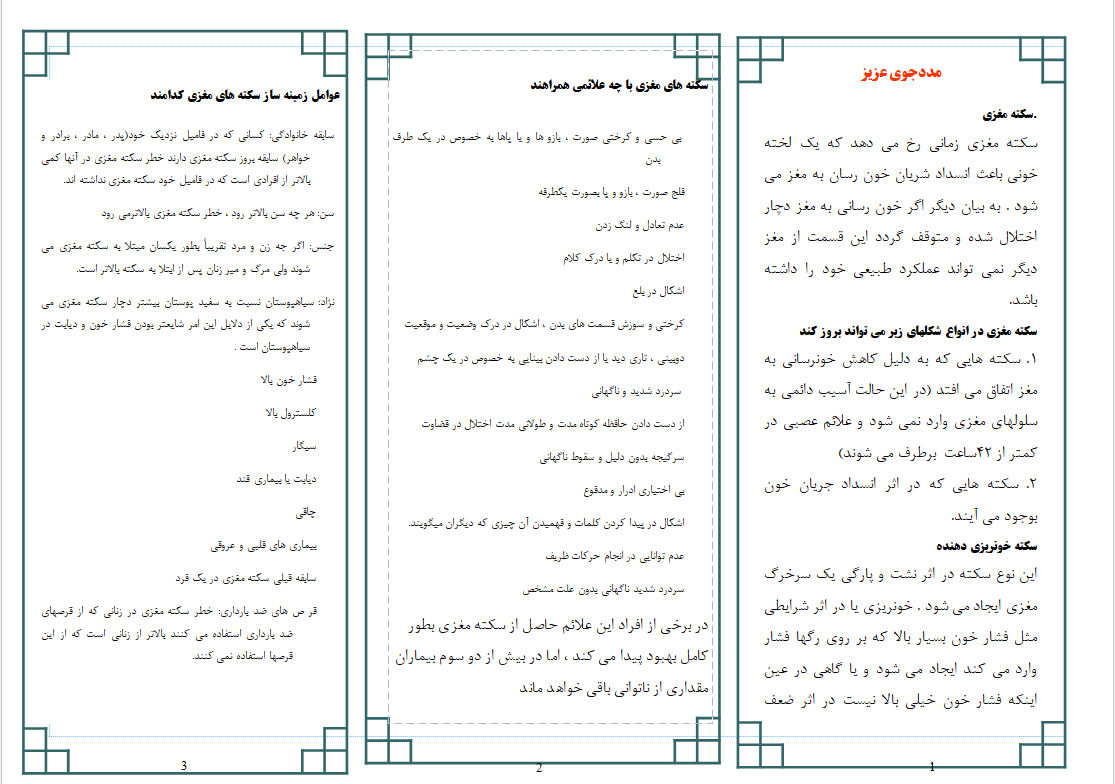 مددجوی عزیز
.سکته مغزی
سکته مغزی زمانی رخ می دهد که یک لخته
خونی باعث انسداد شریان خون رسان به مغز می
شود . به بیان دیگر اگر خون رسانی به مغز دچار
اختلال شده و متوقف گردد این قسمت از مغز
دیگر نمی تواند عملکرد طبیعی خود را داشته
باشد.
سکته مغزی در انواع شکلهای زیر می تواند بروز کند
۱. سکته هایی که به دلیل کاهش خونرسانی به
مغز اتفاق می افتد (در این حالت آسیب دائمی به
سلولهای مغزی وارد نمی شود و علائم عصبی در
کمتر از ۴۲ساعت برطرف می شوند)
۲. سکته هایی که در اثر انسداد جریان خون
بوجود می آیند.
سکته خونریزی دهنده
این نوع سکته در اثر نشت و پارگی یک سرخرگ
مغزی ایجاد می شود . خونریزی یا در اثر شرایطی
مثل فشار خون بسیار بالا که بر روی رگها فشار
وارد می کند ایجاد می شود و یا گاهی در عین
اینکه فشار خون خیلی بالا نیست در اثر ضعف
1
سکته های مغزی با چه علائمی همراهند
بی حسی و کرختی صورت ، بازو ها و یا پاها به خصوص در یک طرف
بدن
فلج صورت ، بازو و پا بصورت یکطرفه
عدم تعادل و لنگ زدن
اختلال در تکلم و یا درک کلام
اشکال در بلع
کرختی و سوزش قسمت های بدن ، اشکال در درک وضعیت و موقعیت
دوبینی ، تاری دید یا از دست دادن بینایی به خصوص در یک چشم
سردرد شدید و ناگهانی
از دست دادن حافظه کوتاه مدت و طولانی مدت اختلال در قضاوت
سرگیجه بدون دلیل و سقوط ناگهانی
بی اختیاری ادرار و مدفوع
اشکال در پیدا کردن کلمات و فهمیدن آن چیزی که دیگران میگویند.
عدم توانایی در انجام حرکات ظریف
سردرد شدید ناگهانی بدون علت مشخص
در برخی از افراد این علائم حاصل از سکته مغزی بطور
کامل بهبود پیدا می کند ، اما در بیش از دو سوم بیماران
مقداری از ناتوانی باقی خواهد ماند
2
عوامل زمینه ساز سکته های مغزی کدامند
سابقه خانوادگی: کسانی که در فامیل نزدیک خود(پدر ، مادر ، برادر و
خواهر) سابقه بروز سکته مغزی دارند خطر سکته مغزی در آنها کمی
بالاتر از افرادی است که در فامیل خود سکته مغزی نداشته اند.
سن: هر چه سن بالاتر رود ، خطر سکته مغزی بالاترمی رود
جنس: اگر چه زن و مرد تقریباً بطور یکسان مبتلا به سکته مغزی می
شوند ولی مرگ و میر زنان پس از ابتلا به سکته بالاتر است.
نژاد: سیاهپوستان نسبت به سفید پوستان بیشتر دچار سکته مغزی می
شوند که یکی از دلایل این امر شایعتر بودن فشار خون و دیابت در
سیاهپوستان است .
فشار خون بالا
کلسترول بالا
سیگار
دیابت یا بیماری قند
چاقی
بیماری های قلبی و عروقی
سابقه قبلی سکته مغزی در یک فرد
قر ص های ضد بارداری: خطر سکته مغزی در زنانی که از قرصهای
ضد بارداری استفاده می کنند بالاتر از زنانی است که از این
قرصها استفاده نمی کنند.
3